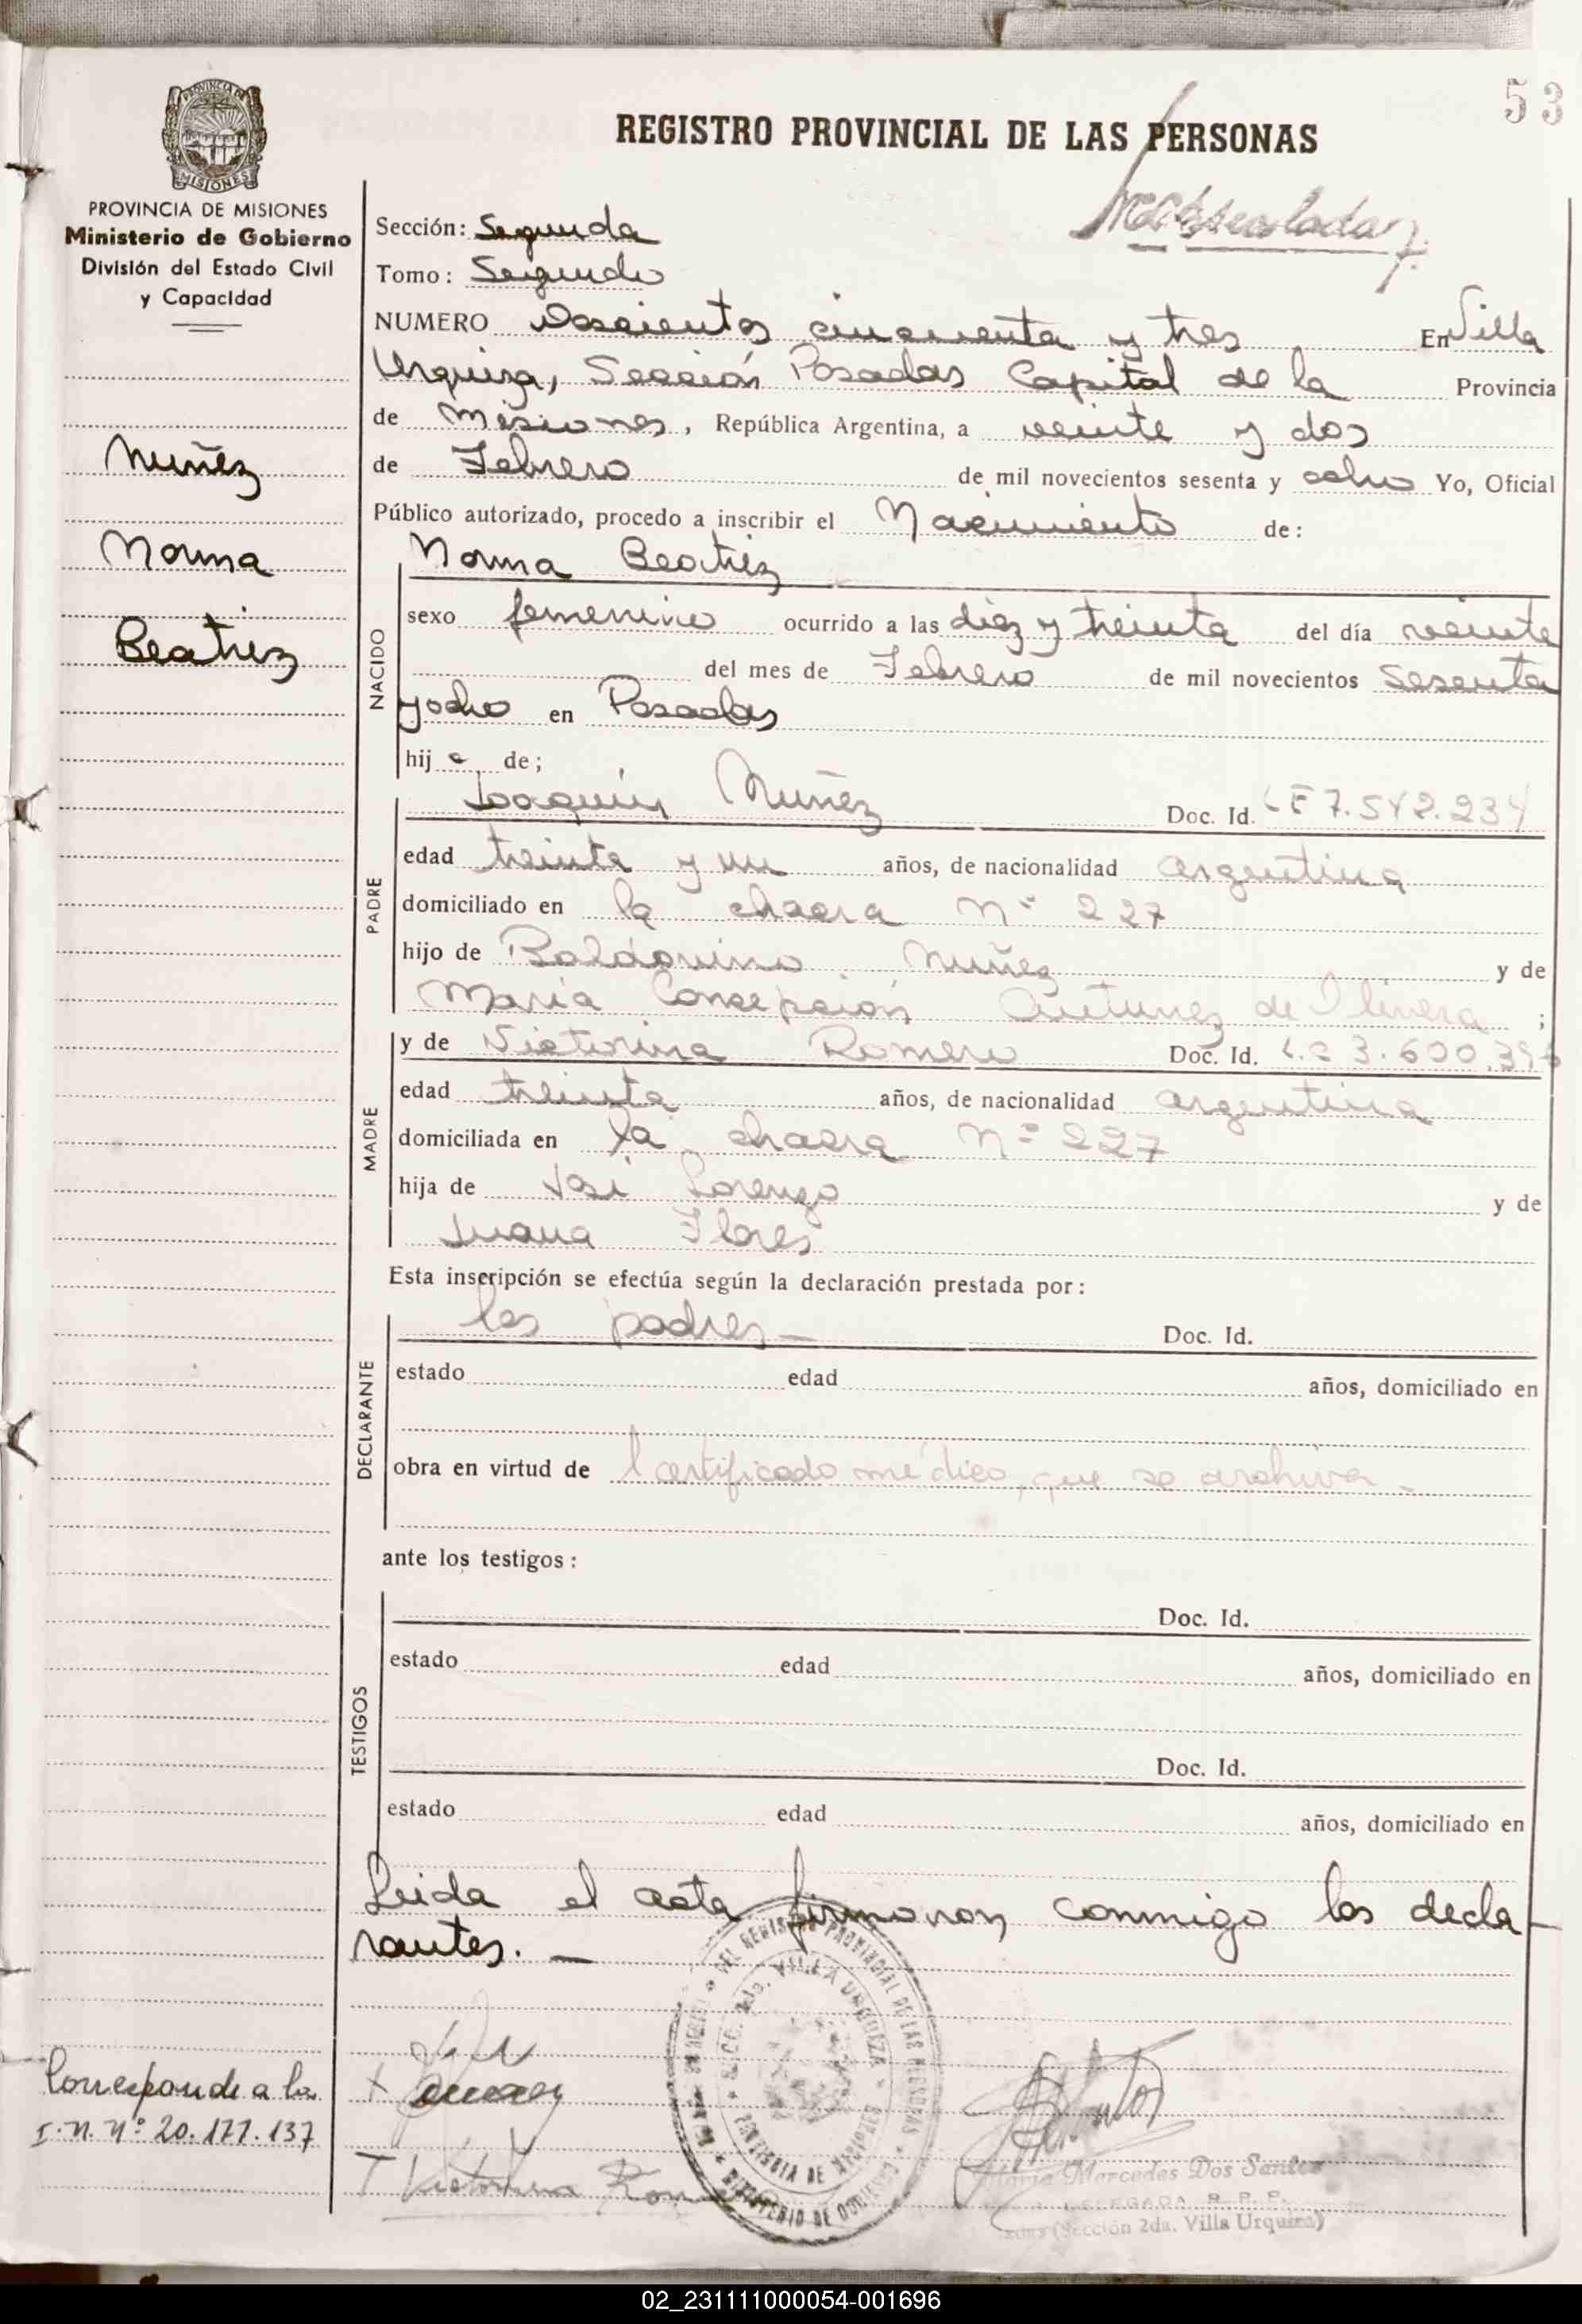 53
REGISTRO PROVINCIAL DE LAS PERSONAS
PROVINCIA DE MISIONES
Ministerio de Gobierno
División del Estado Civil
y Capacidad
Nuñez
Norma
Beatriz
Sección: Segunda
Tomo: Segundo
NUMERO Doscientos cincuenta y tres En Villa
Urquiza, Sección Posadas Capital de la Provincia
de Misiones, República Argentina, a veinte y dos
de Febrero de mil novecientos sesenta y ocho Yo, Oficial
Público autorizado, procedo a inscribir el Nacimiento de:
NACIDO
Norma Beatriz
sexo femenino ocurrido a las diez y treinta del día veinte
del mes de Febrero de mil novecientos sesenta
y ocho en Posadas
hija de;
PADRE
Joaquín Nuñez Doc. Id. LE 7.542.234
edad treinta y un años, de nacionalidad argentina
domiciliado en la chacra Nº 227
hijo de Baldovino Nuñez y de
María Concepción Antunez de Olivera ;
MADRE
y de Victorina Romero Doc. Id. L.C 3.600.396
edad treinta años, de nacionalidad argentina
domiciliada en la chacra Nº 227
hija de José Lorenzo y de
Juana Flores
Esta inscripción se efectúa según la declaración prestada por:
DECLARANTE
los padres— Doc. Id.
estado edad años, domiciliado en
obra en virtud de l certificado médico, que se archiva-
ante los testigos:
TESTIGOS
Doc. Id.
estado edad años, domiciliado en
Doc. Id.
estado edad años, domiciliado en
Leida el acta firmaron conmigo los decla-
rantes.—
Corresponde a la
I.N. Nº 20.177.137
Victorina Rom
SECC. 2da. VILLA URQUIZA
PROVINCIA DE MISIONES
DEL REGISTRO PROVINCIAL DE LAS PERSONAS
MINISTERIO DE GOBIERNO
Maria Mercedes Dos Santos
DELEGADA R. P. P.
(Sección 2da. Villa Urquiza)
02_231111000054-001696